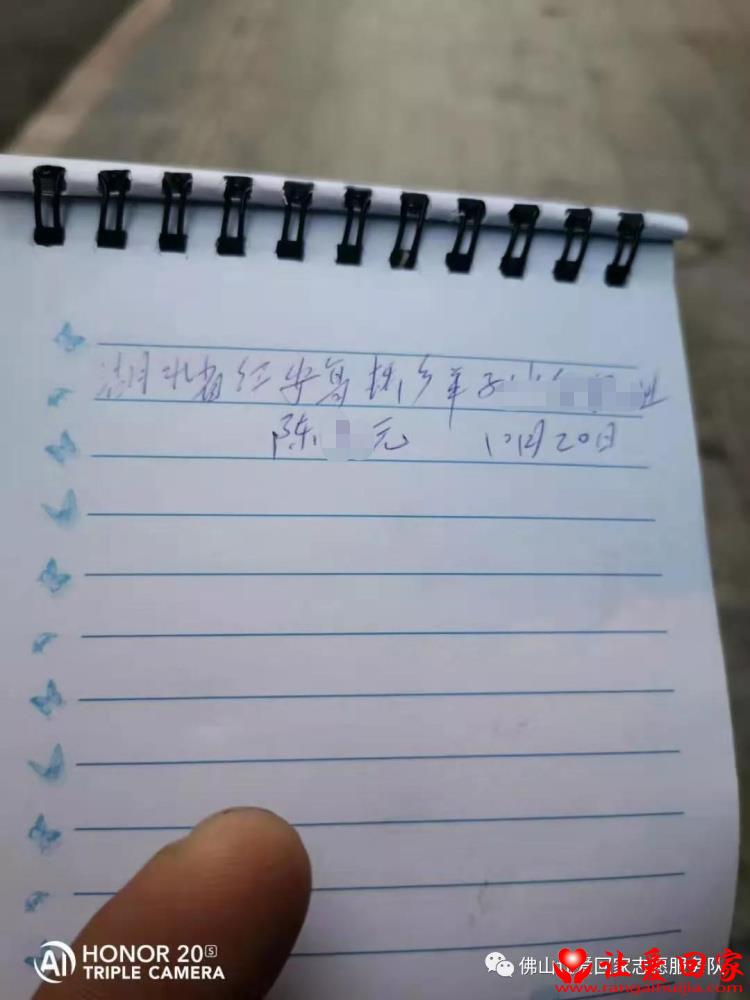 湖北省红安县 乡
陈 元 10月20日
HONOR 20S
TRIPLE CAMERA
佛山 回家志愿服务队
让爱回家
www.rangaihuijia.com